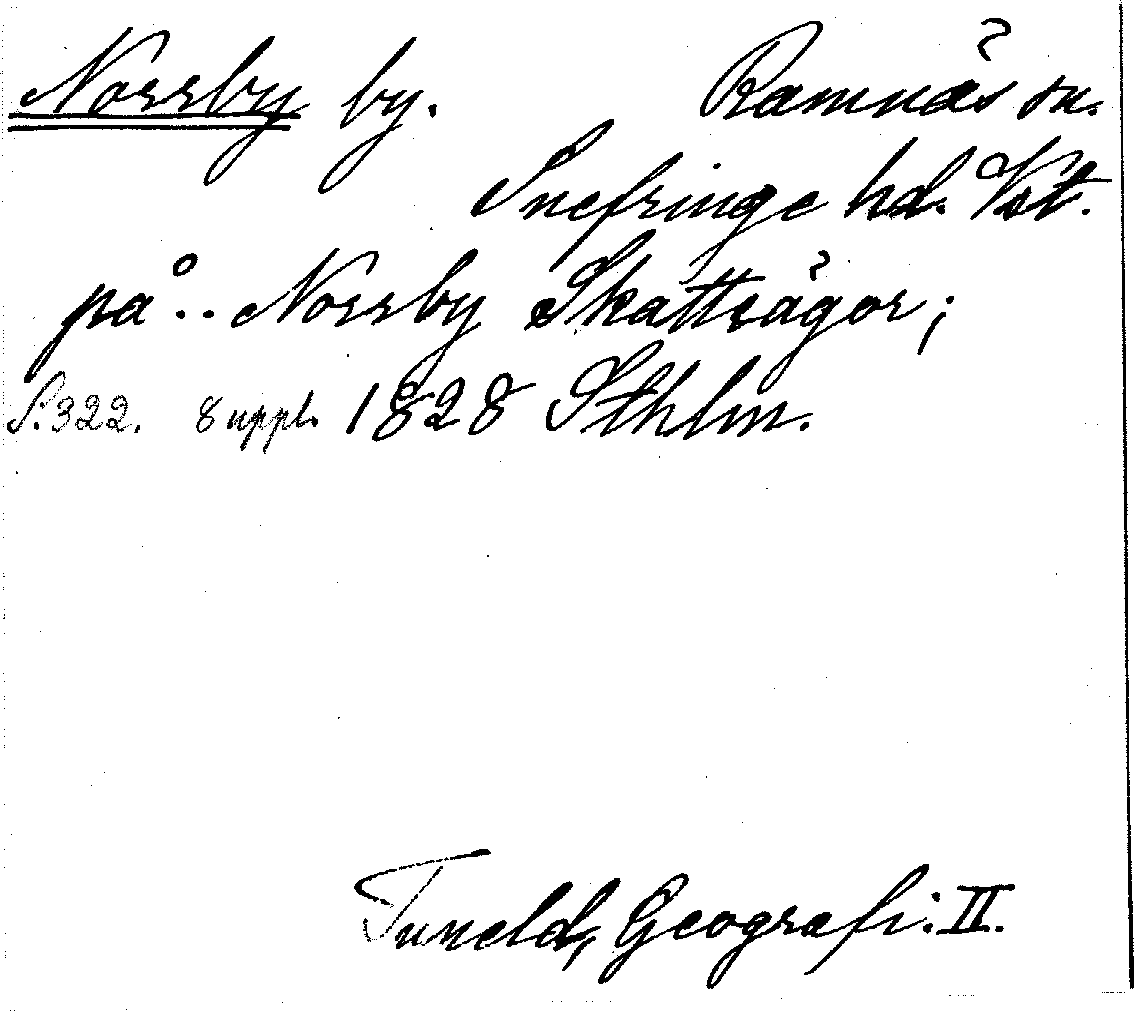 Norrby by. Ramnäs sn.
Snefringe hd. Vst.
på .. Norrby Skattsägor;
S. 322. 8 uppl. 1828 Sthlm.
Tuneld, Geografi. II.